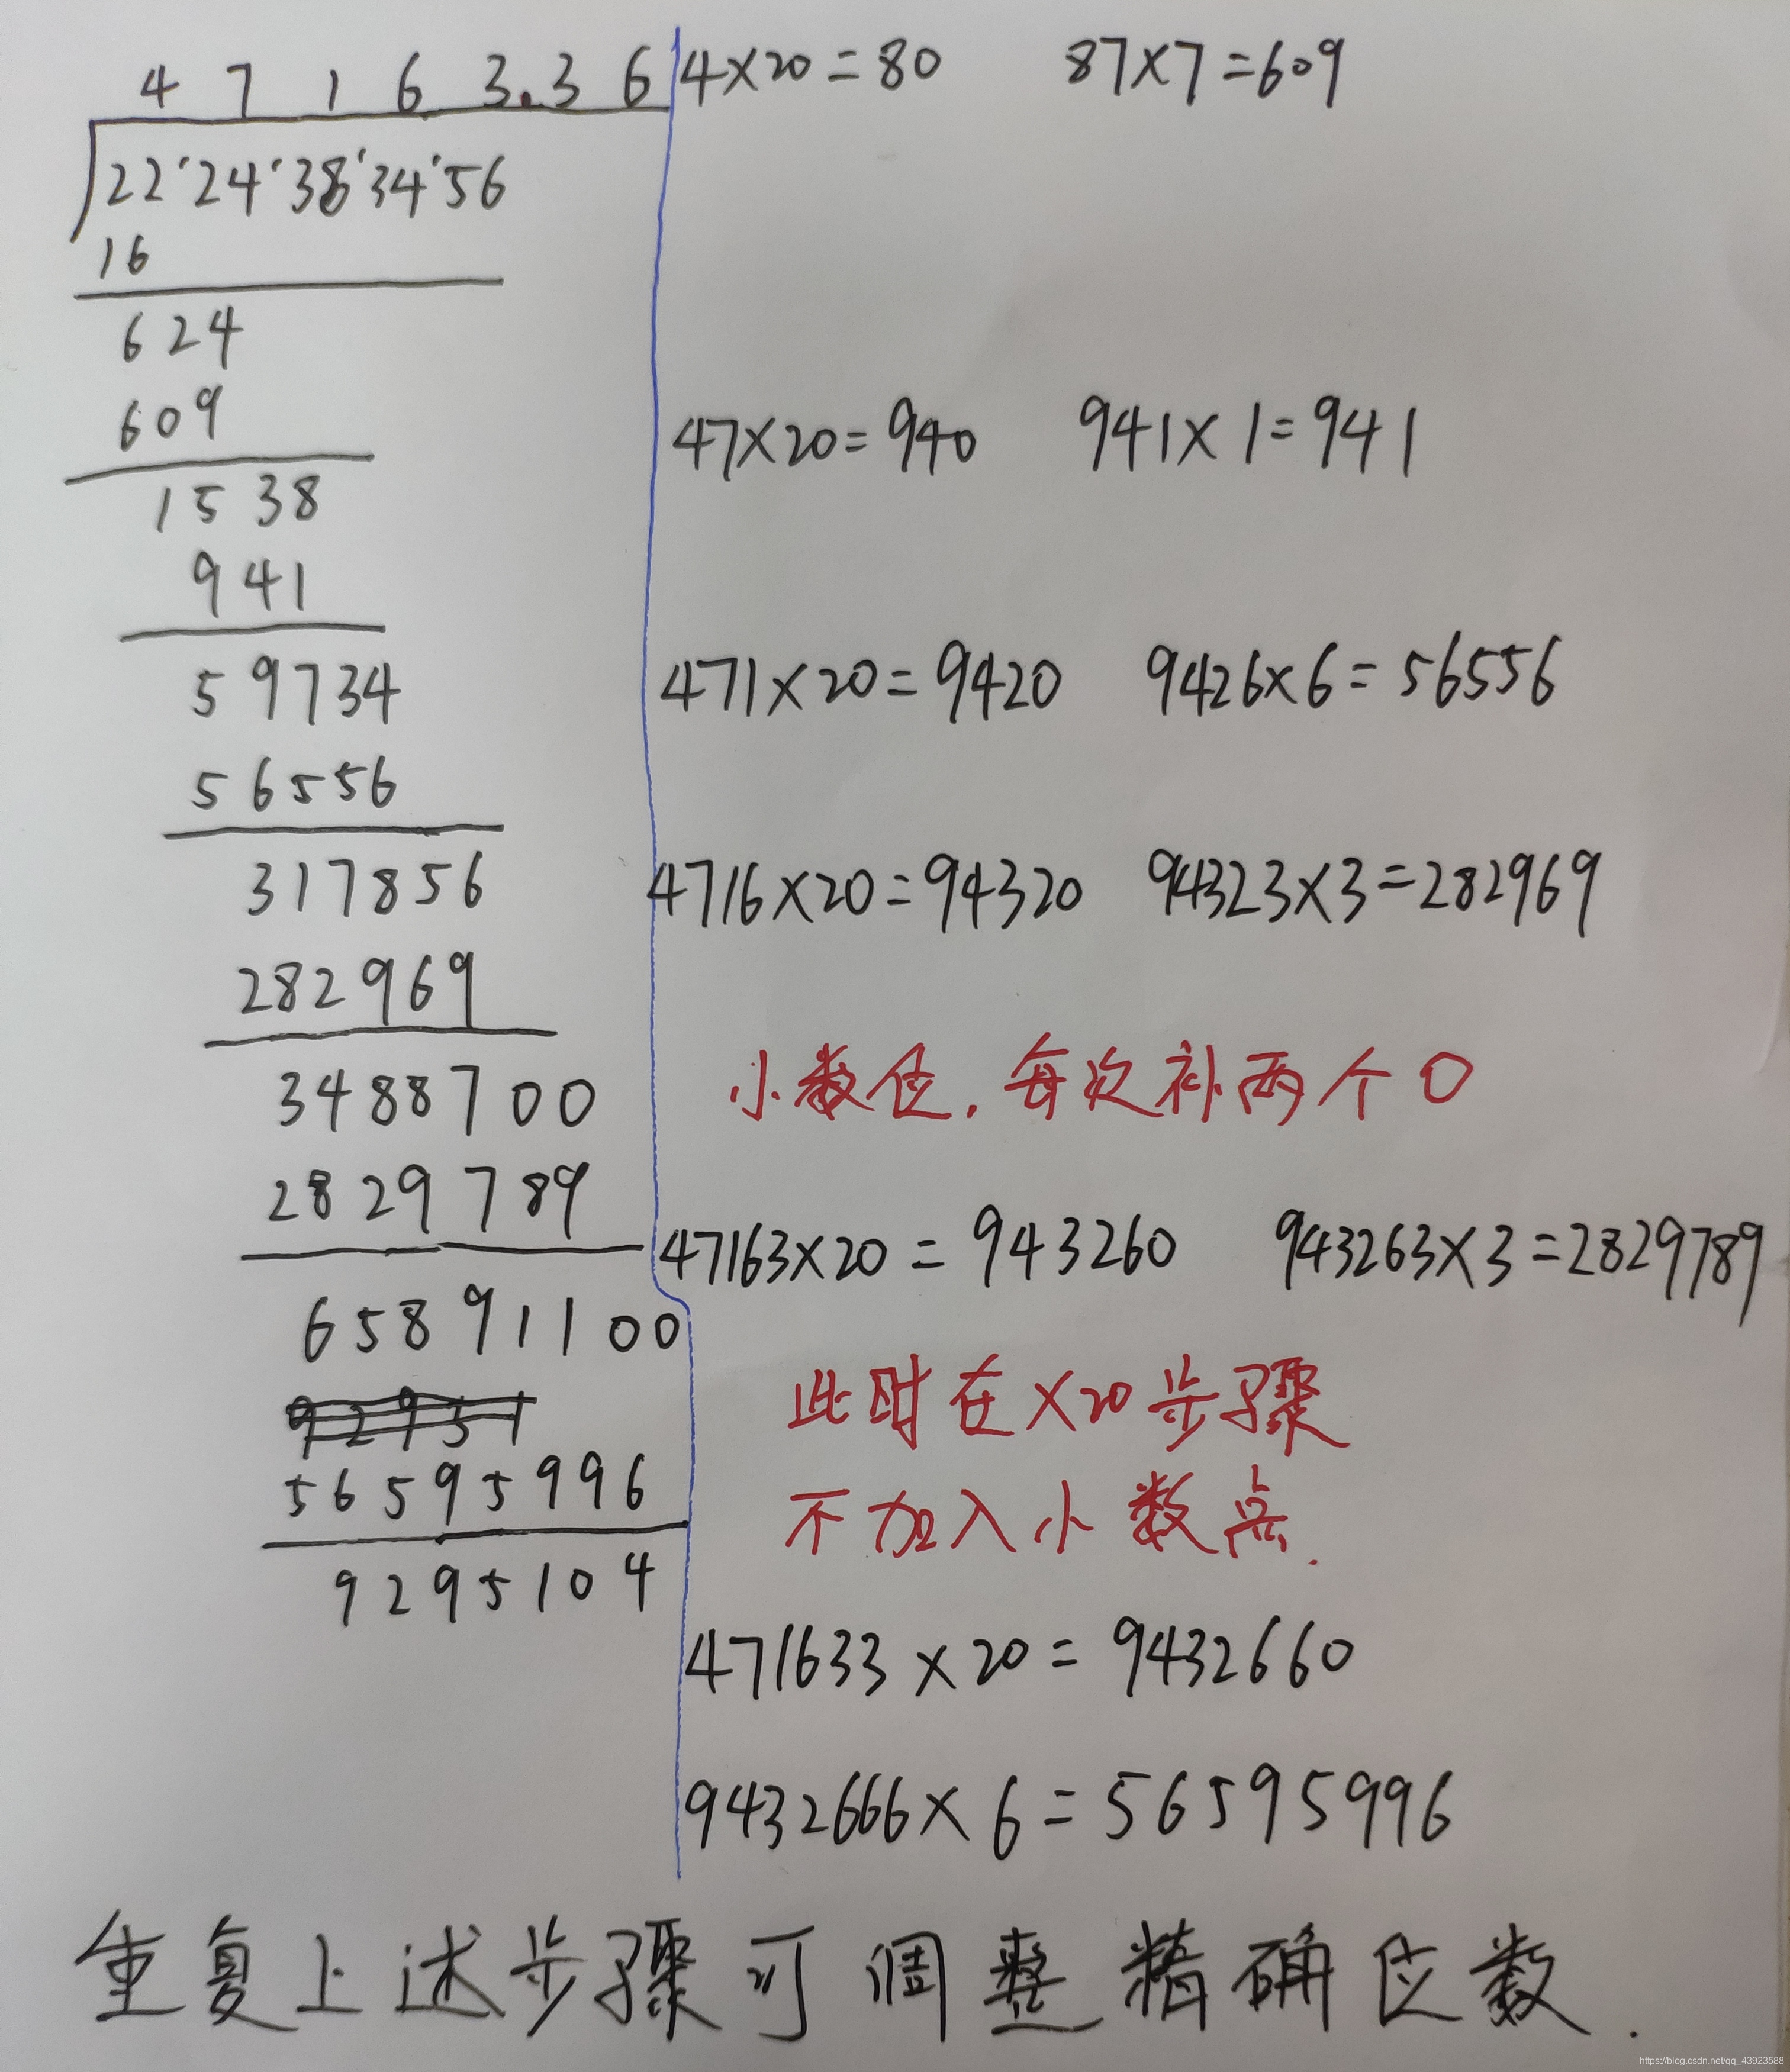 4 7 1 6 3.3 6
22'24'38'34'56
16
624
609
1538
941
59734
56556
317856
282969
3488700
2829789
65891100
56595996
9295104
4×20=80 87×7=609
47×20=940 941×1=941
471×20=9420 9426×6=56556
4716×20=94320 94323×3=282969
小数位，每次补两个0
47163×20=943260 943263×3=2829789
此时在×20步骤
不加入小数点.
471633×20=9432660
9432666×6=56595996
重复上述步骤可调整精确位数.
https://blog.csdn.net/qq_43923588